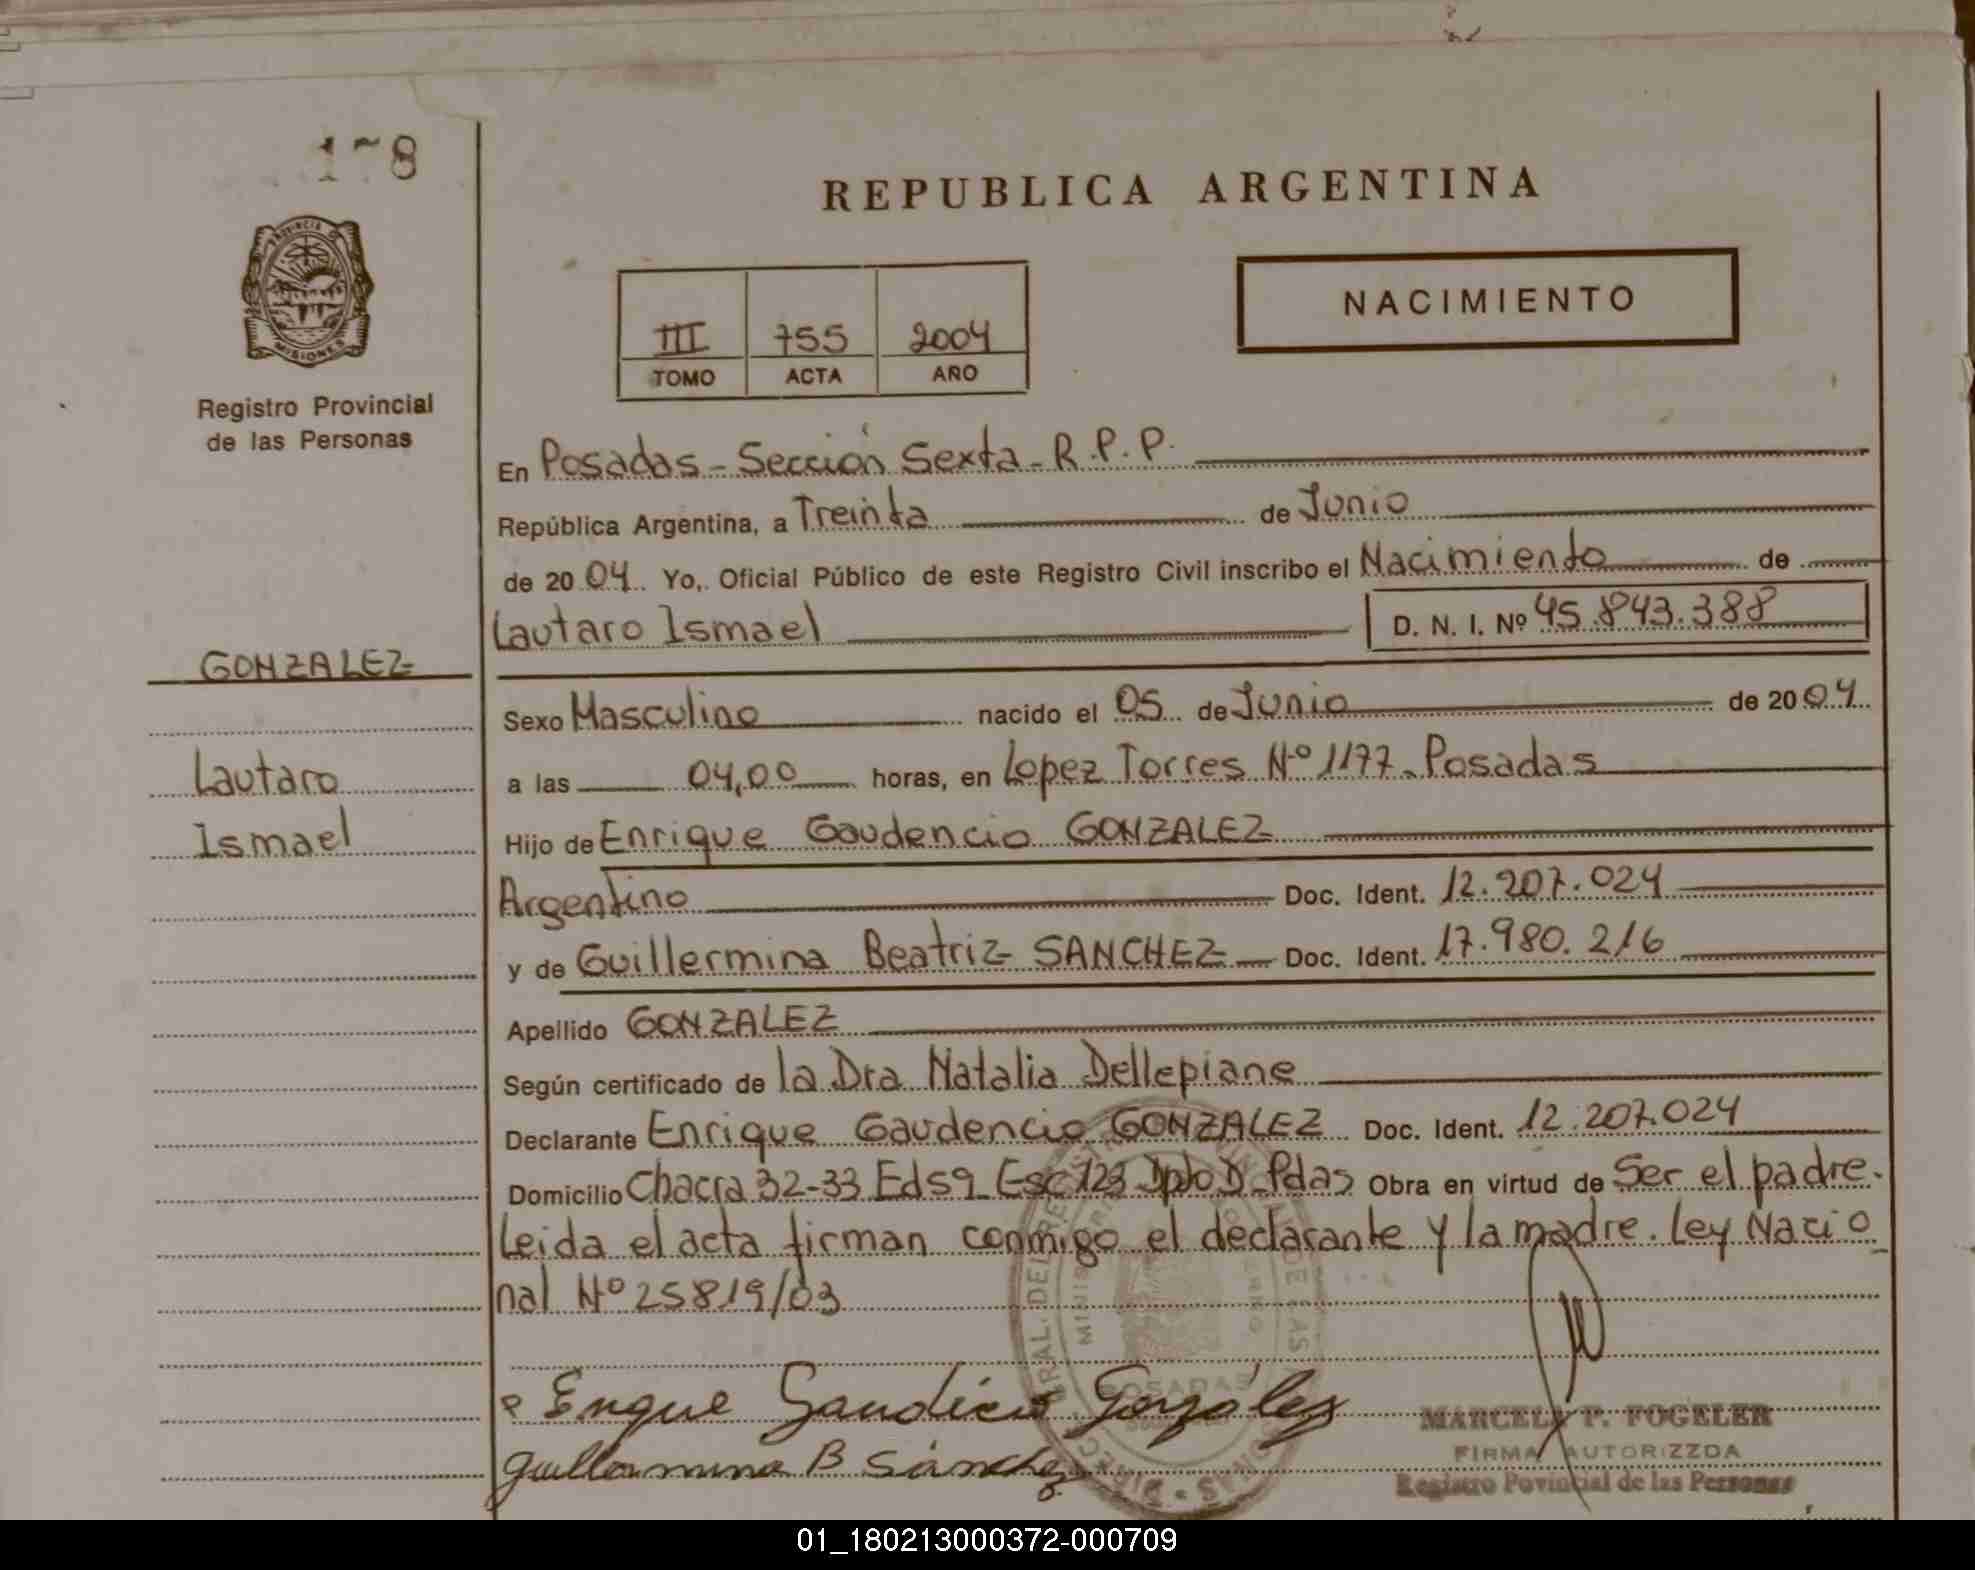 178
REPUBLICA ARGENTINA
NACIMIENTO
III 755 2004
TOMO ACTA AÑO
PROVINCIA DE
MISIONES
Registro Provincial
de las Personas
En Posadas - Sección Sexta - R.P.P.
República Argentina, a Treinta de Junio
de 20 04. Yo, Oficial Público de este Registro Civil inscribo el Nacimiento de
Lautaro Ismael D. N. I. Nº 45.843.388
GONZALEZ
Sexo Masculino nacido el 05 de Junio de 20 04
Lautaro
a las 04,00 horas, en Lopez Torres Nº 1177. Posadas
Ismael
Hijo de Enrique Gaudencio GONZALEZ
Argentino Doc. Ident. 12.207.024
y de Guillermina Beatriz SANCHEZ Doc. Ident. 17.980.216
Apellido GONZALEZ
Según certificado de la Dra Natalia Dellepiane
Declarante Enrique Gaudencio GONZALEZ Doc. Ident. 12.207.024
Domicilio Chacra 32-33 Ed59 Esc 123 Dpto D Pdas Obra en virtud de Ser el padre.
Leida el acta firman conmigo el declarante y la madre. Ley Nacio
nal Nº 25819/03
POSADAS
Enrique Gaudencio González
Guillermina B Sánchez
MARCELA P. FOGELER
FIRMA AUTORIZZDA
Registro Povincial de las Personas
01_180213000372-000709